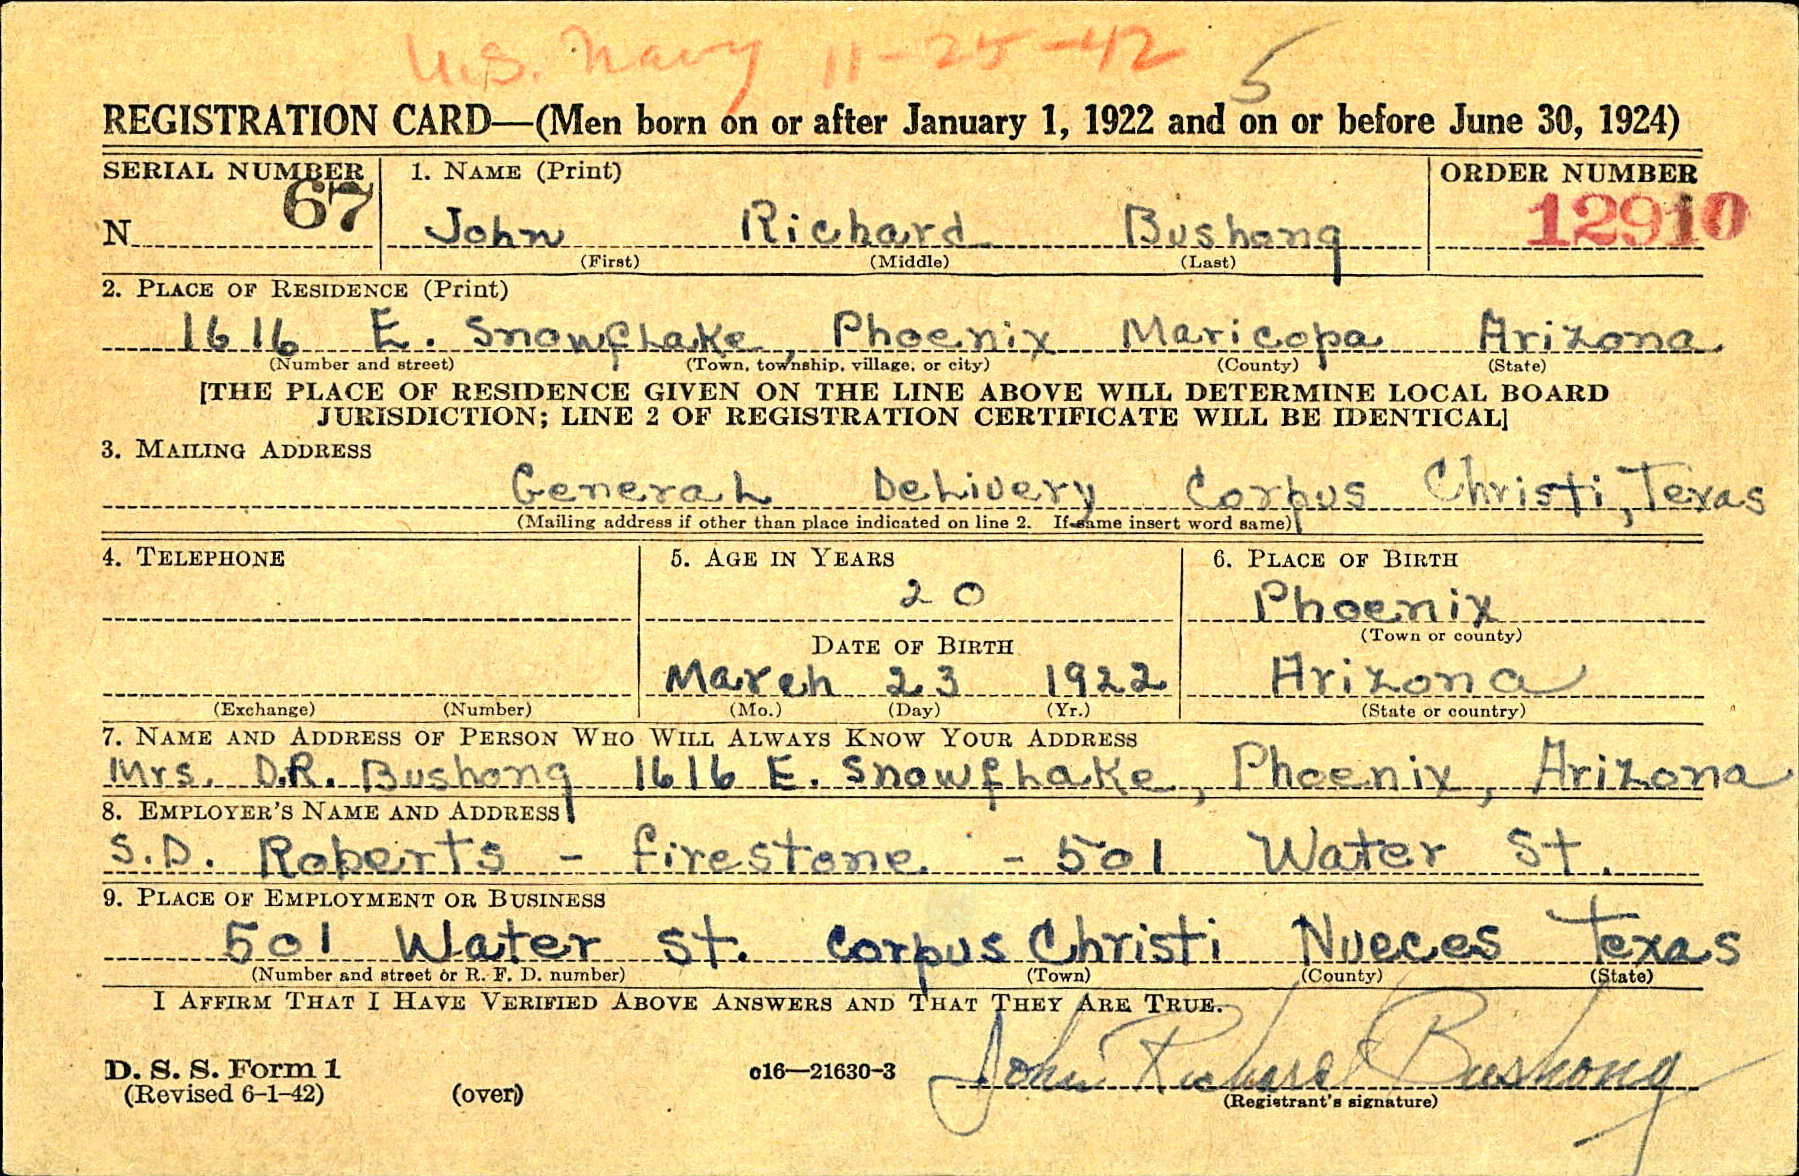 U.S. Navy 11-25-42 5
REGISTRATION CARD—(Men born on or after January 1, 1922 and on or before June 30, 1924)
SERIAL NUMBER 1. NAME (Print) ORDER NUMBER
N 67 John Richard Bushong 12910
(First) (Middle) (Last)
2. PLACE OF RESIDENCE (Print)
1616 E. Snowflake, Phoenix Maricopa Arizona
(Number and street) (Town, township, village, or city) (County) (State)
[THE PLACE OF RESIDENCE GIVEN ON THE LINE ABOVE WILL DETERMINE LOCAL BOARD
JURISDICTION; LINE 2 OF REGISTRATION CERTIFICATE WILL BE IDENTICAL]
3. MAILING ADDRESS
General Delivery Corpus Christi, Texas
(Mailing address if other than place indicated on line 2. If same insert word same)
4. TELEPHONE 5. AGE IN YEARS 6. PLACE OF BIRTH
20 Phoenix
(Town or county)
DATE OF BIRTH
March 23 1922 Arizona
(Exchange) (Number) (Mo.) (Day) (Yr.) (State or country)
7. NAME AND ADDRESS OF PERSON WHO WILL ALWAYS KNOW YOUR ADDRESS
Mrs. D.R. Bushong 1616 E. Snowflake, Phoenix, Arizona
8. EMPLOYER'S NAME AND ADDRESS
S.D. Roberts - Firestone - 501 Water St.
9. PLACE OF EMPLOYMENT OR BUSINESS
501 Water St. Corpus Christi Nueces Texas
(Number and street or R. F. D. number) (Town) (County) (State)
I AFFIRM THAT I HAVE VERIFIED ABOVE ANSWERS AND THAT THEY ARE TRUE.
D. S. S. Form 1 c16—21630-3 John Richard Bushong
(Revised 6-1-42) (over) (Registrant's signature)